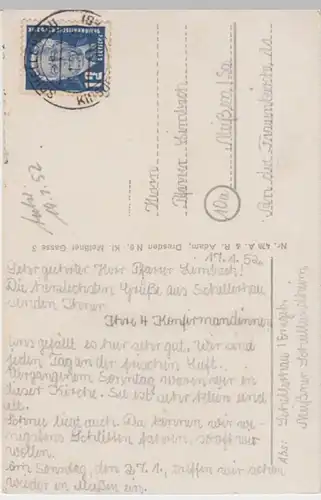 17.1.52.
Sehr geehrter Herr Pfarrer Lembach!
Die herzlichsten Grüße aus Schellerhau
senden Ihnen
Ihre 4 Konfirmandinnen
uns gefällt es hier sehr gut. Wir sind
jeden Tag an der frischen Luft.
Vergangenen Sonntag waren wir in
dieser Kirche. Sie ist sehr klein und
alt.
Schnee liegt auch. Da können wir we-
nigstens Schlitten fahren, sooft wir
wollen.
Am Sonntag, den 27.1., treffen wir schon
wieder in Meißen ein.
Herrn
Pfarrer Lembach
(10a) Meißen/Sa
An der Frauenkirche 11
Abs: Schellerhau/Erzgeb.
Meißner Schülerheim
Nr. 438 A. & R. Adam, Dresden N 6, Kl. Meißner Gasse 3
19.1.52
12